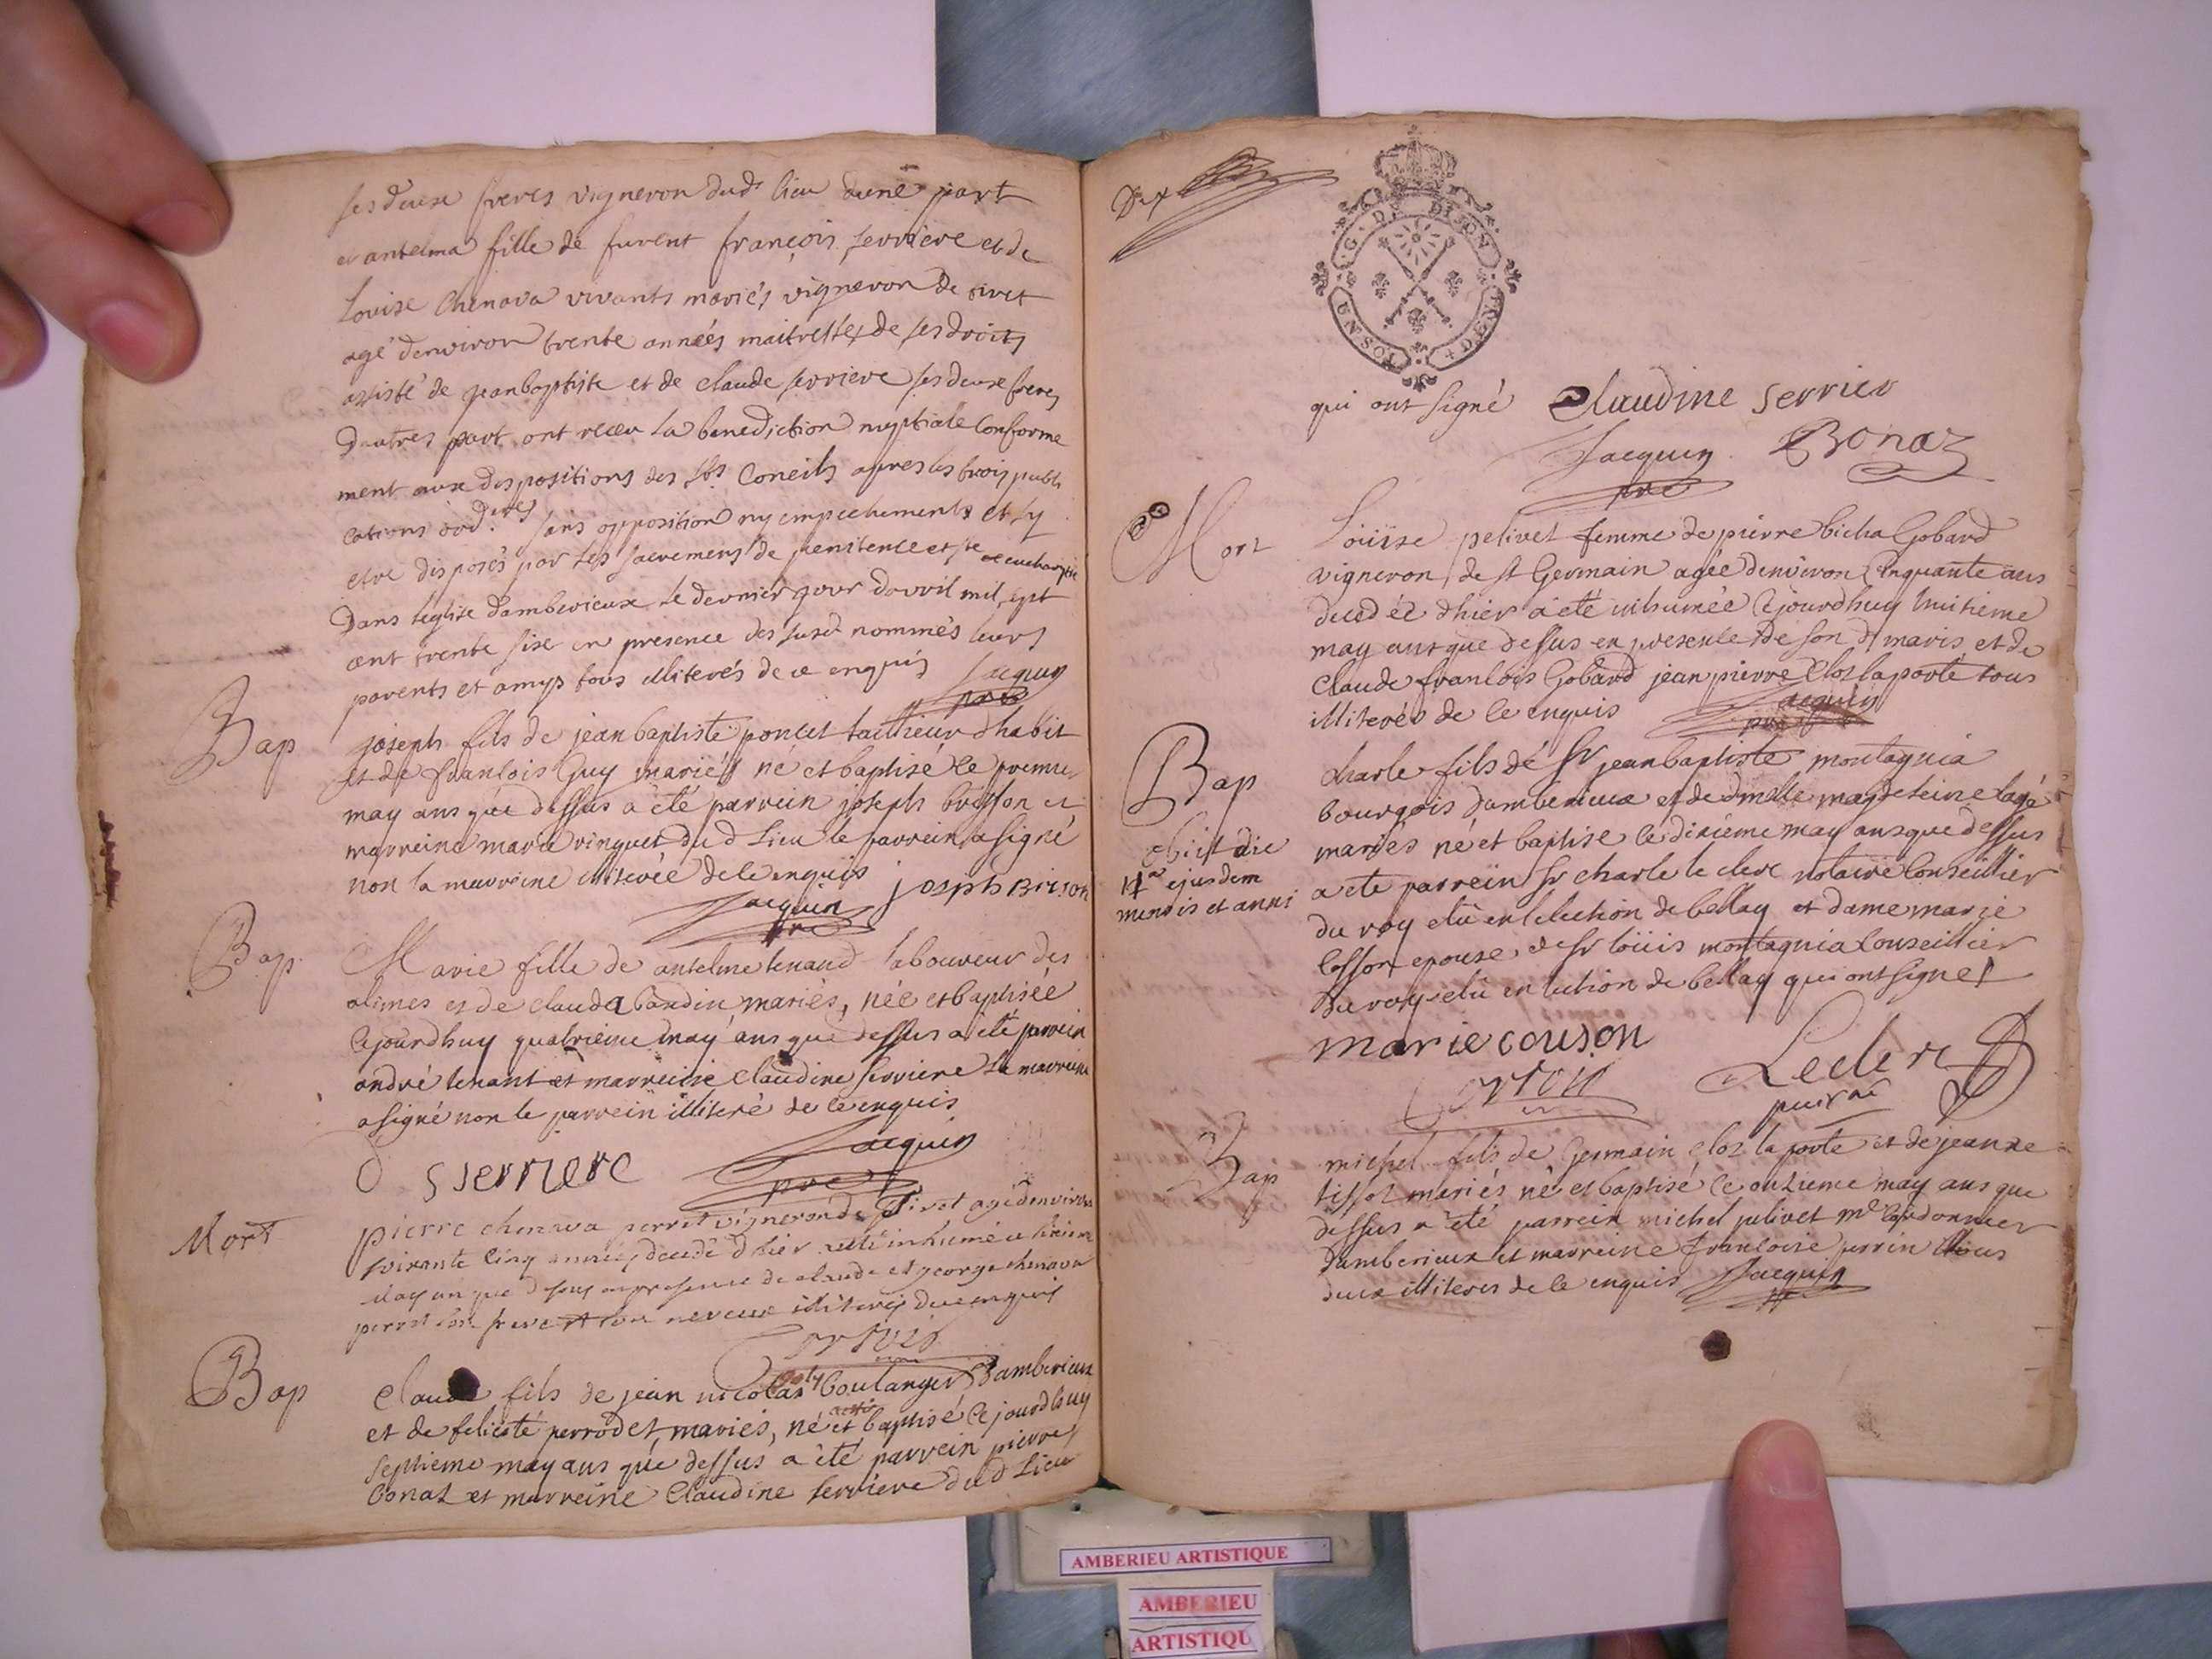 ses deux freres vigneron dud lieu dune part
et antelma fille de furent françois serriere et de
Louise Chenava vivants mariés vigneron de tiret
agé denviron trente années maitresse de ses droits
assisté de jeanbaptiste et de claude serriere ses deux freres
dautres part ont receu la benediction nuptiale conforme
ment aux dispositions des sts Concils apres les trois publi
cations ord.res sans opposition ny empechements et sy
etre disposés par les sacremens de penitence et de eucharistie
Dans leglise damberieux le dernier jour davril mil sept
cent trente six en presence des susd nommés leurs
parents et amys tous illiterés de ce enquis Jacquin
pre
Bap joseph fils de jean baptiste poncet taillieur dhabit
et de francois Guy mariés né et baptisé le premier
may ans que dessus a été parrein joseph brisson et
marreine marie vinguet dud Lieu le parrein a signé
non la marreine illiterée de ce enquis joseph Brison
Jacquin
pre
Bap Marie fille de antelme tenand laboureur des
alimes et de claudα bandin mariés, née et baptisée
cejourdhuy quatrieme may ans que dessus a été parrein
andré tenant et marreine claudine serriere la marreine
a signé non le parrein illiteré de ce enquis
Jacquin
C serriere
pre
Mort pierre chenava perret vigneron de Tiret agé denviron
soixante cinq années decedé dhier a été inhumé ce
may an que dessus en presence de claude et george chenava
perret son frere et son neveux illiterés de ce enquis
Bap Claude fils de jean nicolas boulanger Damberieux
et de felicité perrodet mariés, né et baptisé cejourdhuy
septieme may ans que dessus a été parrein pierre
bonaz et marreine Claudine serriere dud Lieu
G. DE DIJON
qui ont signé Claudine serrier
Jacquin Bonaz
pre
Mort Loüise pelivet femme de pierre bicha Gobard
vigneron de st Germain agée denviron cinquante ans
decedée dhier a eté inhumée cejourdhuy huitieme
may ans que dessus en presence de son d maris et de
Claude francois Gobard jean pierre Cloz laporte tous
illiterés de ce enquis Jacquin
pre
Bap charle fils de Sr jean baptiste montagnia
bourgois damberieux et de dmelle
mariés né et baptise le dixieme may ans que dessus
obiit die
14a ejusdem
mensis et anni
a eté parrein Sr charle le clerc notaire Conseillier
du roy elü en lelection de bellay et dame marie
cosson epouse de Sr loüis montagnia Conseillier
du roy elü en lection de bellay qui ont signe
marie couson
Leclerc
Bap michel fils de Germain cloz la porte et de jeanne
tissot mariés né et baptisé le onzieme may ans que
dessus a été parrein michel julivet me Cordonnier
damberieux et marreine francoise perrin tous
deux illiteres de ce enquis Jacquin
AMBERIEU ARTISTIQUE
AMBERIEU
ARTISTIQU